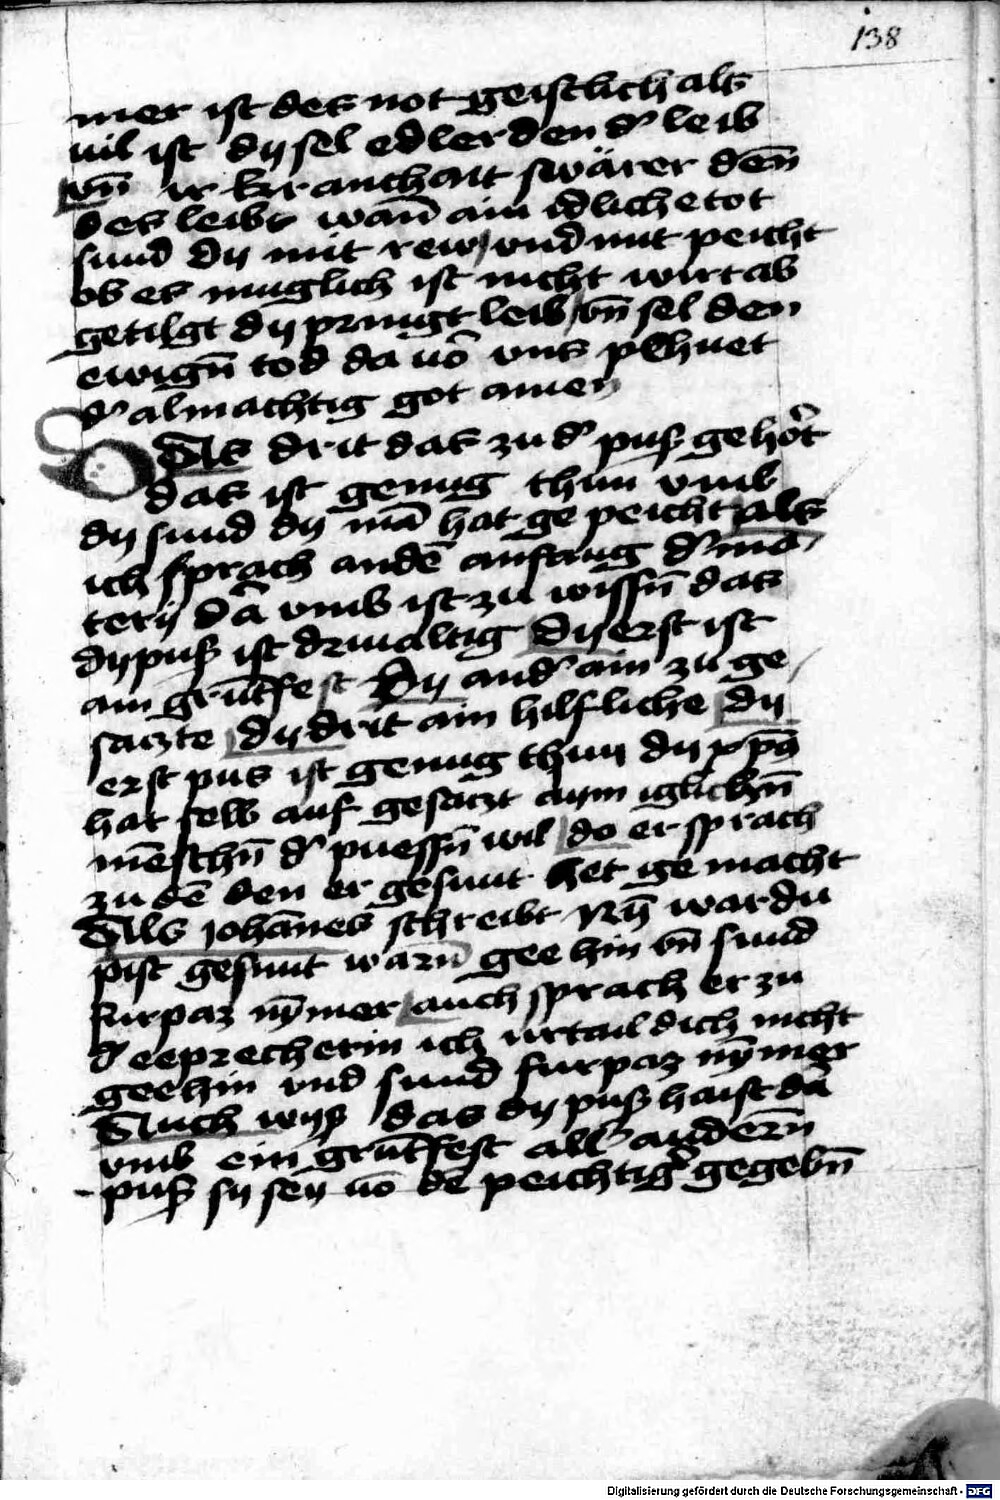 138
mer ist des not geistlich als
vil ist dy sel edler den d' leib
vn̄ ir kranchait swärer den̄
des leibs wan̄ ain idliche tot
sund dy mit rew vnd mit peicht
ob es muglich ist nicht wirt ab
getilgt dy pringt leib vn̄ sel den
ewign̄ tod da vō vns phuet
d' almachtig got amen
Das drit das zu d' puß gehört
das ist genug thun vmb
dy sund dy mā hat gepeicht als
ich sprach an dē anfang d' ma
tery dā vmb ist zu wissn̄ das
dy puß ist drivaltig Dy erst ist
ain grūtfest Dy and' ain zu ge
saczte dy drit ain hilfliche Dy
erst pus ist genug thun dy xp̄s
hat selb auf gesaczt aym iglichn̄
mēschn̄ d' puessn̄ wil do er sprach
zu dē den er gesunt het gemacht
Als johānes schreibt Nȳ war du
pist gesunt warn̄ gee hin vn̄ sund
furpaz nȳmer auch sprach er zu
d' eeprecherin ich urtail dich nicht
gee hin vnd sund furpaz nȳmer
Auch wyß das dy puß haist dā
vmb ein grūtfest all' andern̄
puß sy sey vō dē peichtig' gegebn̄
Digitalisierung gefördert durch die Deutsche Forschungsgemeinschaft - DFG